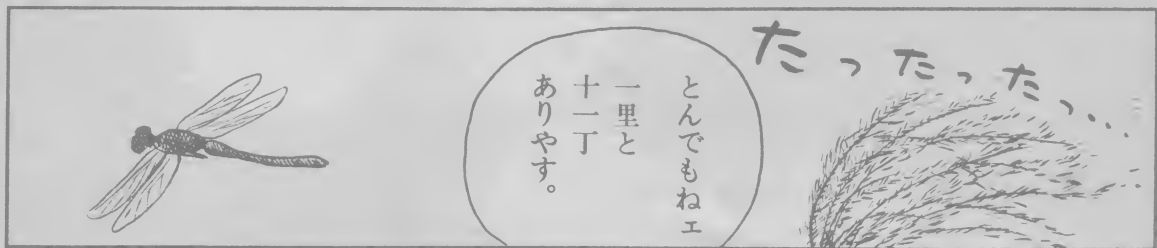 たったったっ…
とんでもねェ
一里と
十一丁
ありやす。